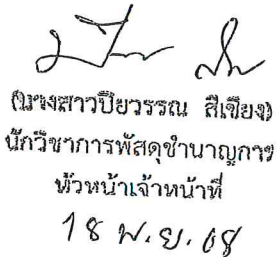 (นางสาวปิยวรรณ สีเขียง)
นักวิชาการพัสดุชำนาญการ
หัวหน้าเจ้าหน้าที่
18 พ.ย. 68